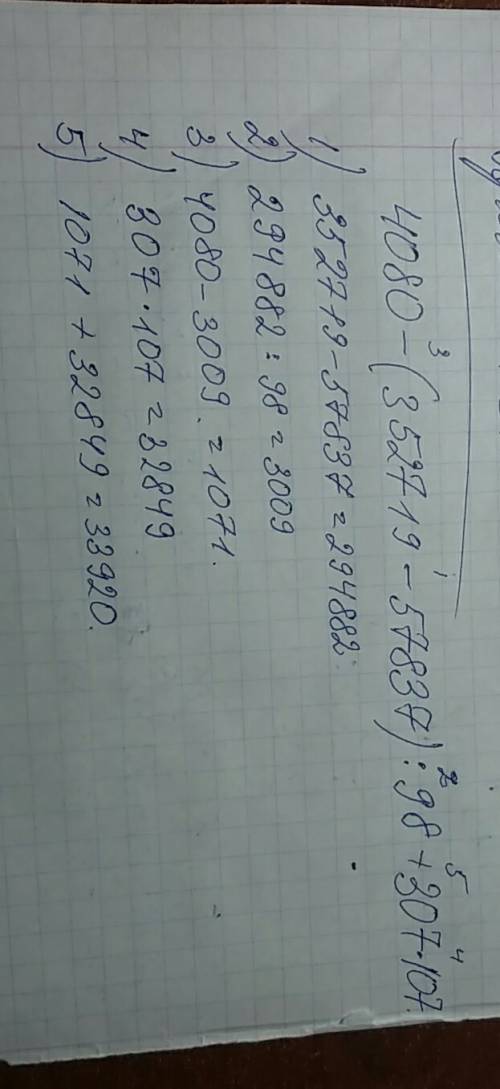 4080 - (352719 - 57837) : 98 + 307 · 107.
3 1 2 5 4
1) 352719 - 57837 = 294882.
2) 294882 : 98 = 3009
3) 4080 - 3009 = 1071.
4) 307 · 107 = 32849
5) 1071 + 32849 = 33920.